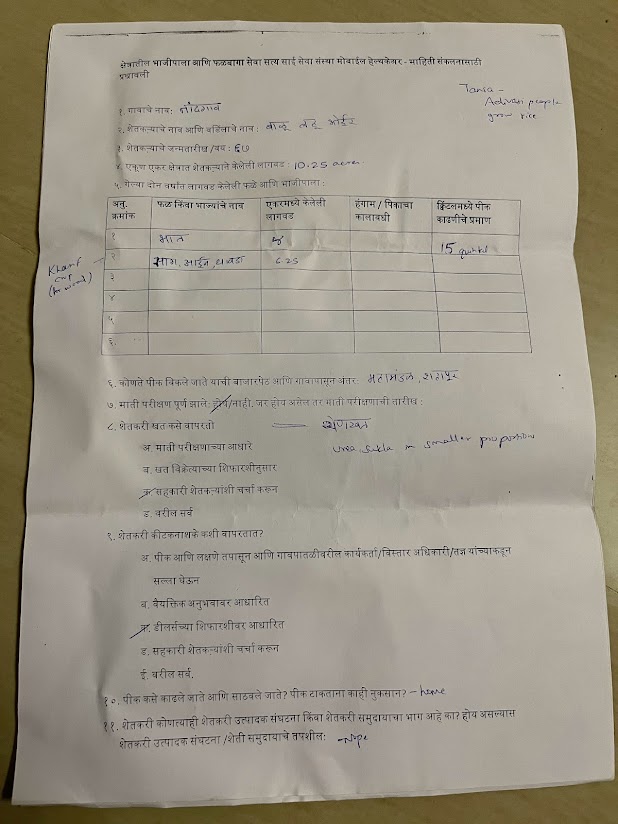 क्षेत्रातील भाजीपाला आणि फळबागा सेवा सत्य साई सेवा संस्था मोबाईल हेल्थकेअर - माहिती संकलनासाठी
प्रश्नावली
Tansa -
Adivasi people
grow rice
१. गावाचे नाव: नांदगाव
२. शेतकऱ्याचे नाव आणि वडिलांचे नाव: बाळू
३. शेतकऱ्याचे जन्मतारीख/वय: ६७
४. एकूण एकर क्षेत्रात शेतकऱ्याने केलेली लागवड: 10.25 acres
५. गेल्या दोन वर्षात लागवड केलेली फळे आणि भाजीपाला:
अनु. क्रमांक फळ किंवा भाज्यांचे नाव एकरमध्ये केलेली लागवड हंगाम / पिकाचा कालावधी क्विंटलमध्ये पीक काढणीचे प्रमाण
१ भात ४ 15 quintal
२ साग, 6.25
Kharif
crop
(for wood)
३
४
५
६.
६. कोणते पीक विकले जाते याची बाजारपेठ आणि गावापासून अंतर: महामंडळ, शहापूर
७. माती परीक्षण पूर्ण झाले: होय/नाही. जर होय असेल तर माती परीक्षणाची तारीख:
८. शेतकरी खत कसे वापरतो — शेणखत
urea, in smaller proportions
अ. माती परीक्षणाच्या आधारे
ब. खत विक्रेत्याच्या शिफारशीनुसार
क. सहकारी शेतकऱ्यांशी चर्चा करून
ड. वरील सर्व
९. शेतकरी कीटकनाशके कशी वापरतात?
अ. पीक आणि लक्षणे तपासून आणि गावपातळीवरील कार्यकर्ता/विस्तार अधिकारी/तज्ञ यांच्याकडून
सल्ला घेऊन
ब. वैयक्तिक अनुभवावर आधारित
क. डीलर्सच्या शिफारशीवर आधारित
ड. सहकारी शेतकऱ्यांशी चर्चा करून
ई. वरील सर्व.
१०. पीक कसे काढले जाते आणि साठवले जाते? पीक टाकताना काही नुकसान? - home
११. शेतकरी कोणत्याही शेतकरी उत्पादक संघटना किंवा शेतकरी समुदायाचा भाग आहे का? होय असल्यास
शेतकरी उत्पादक संघटना /शेती समुदायाचे तपशील: - Nope